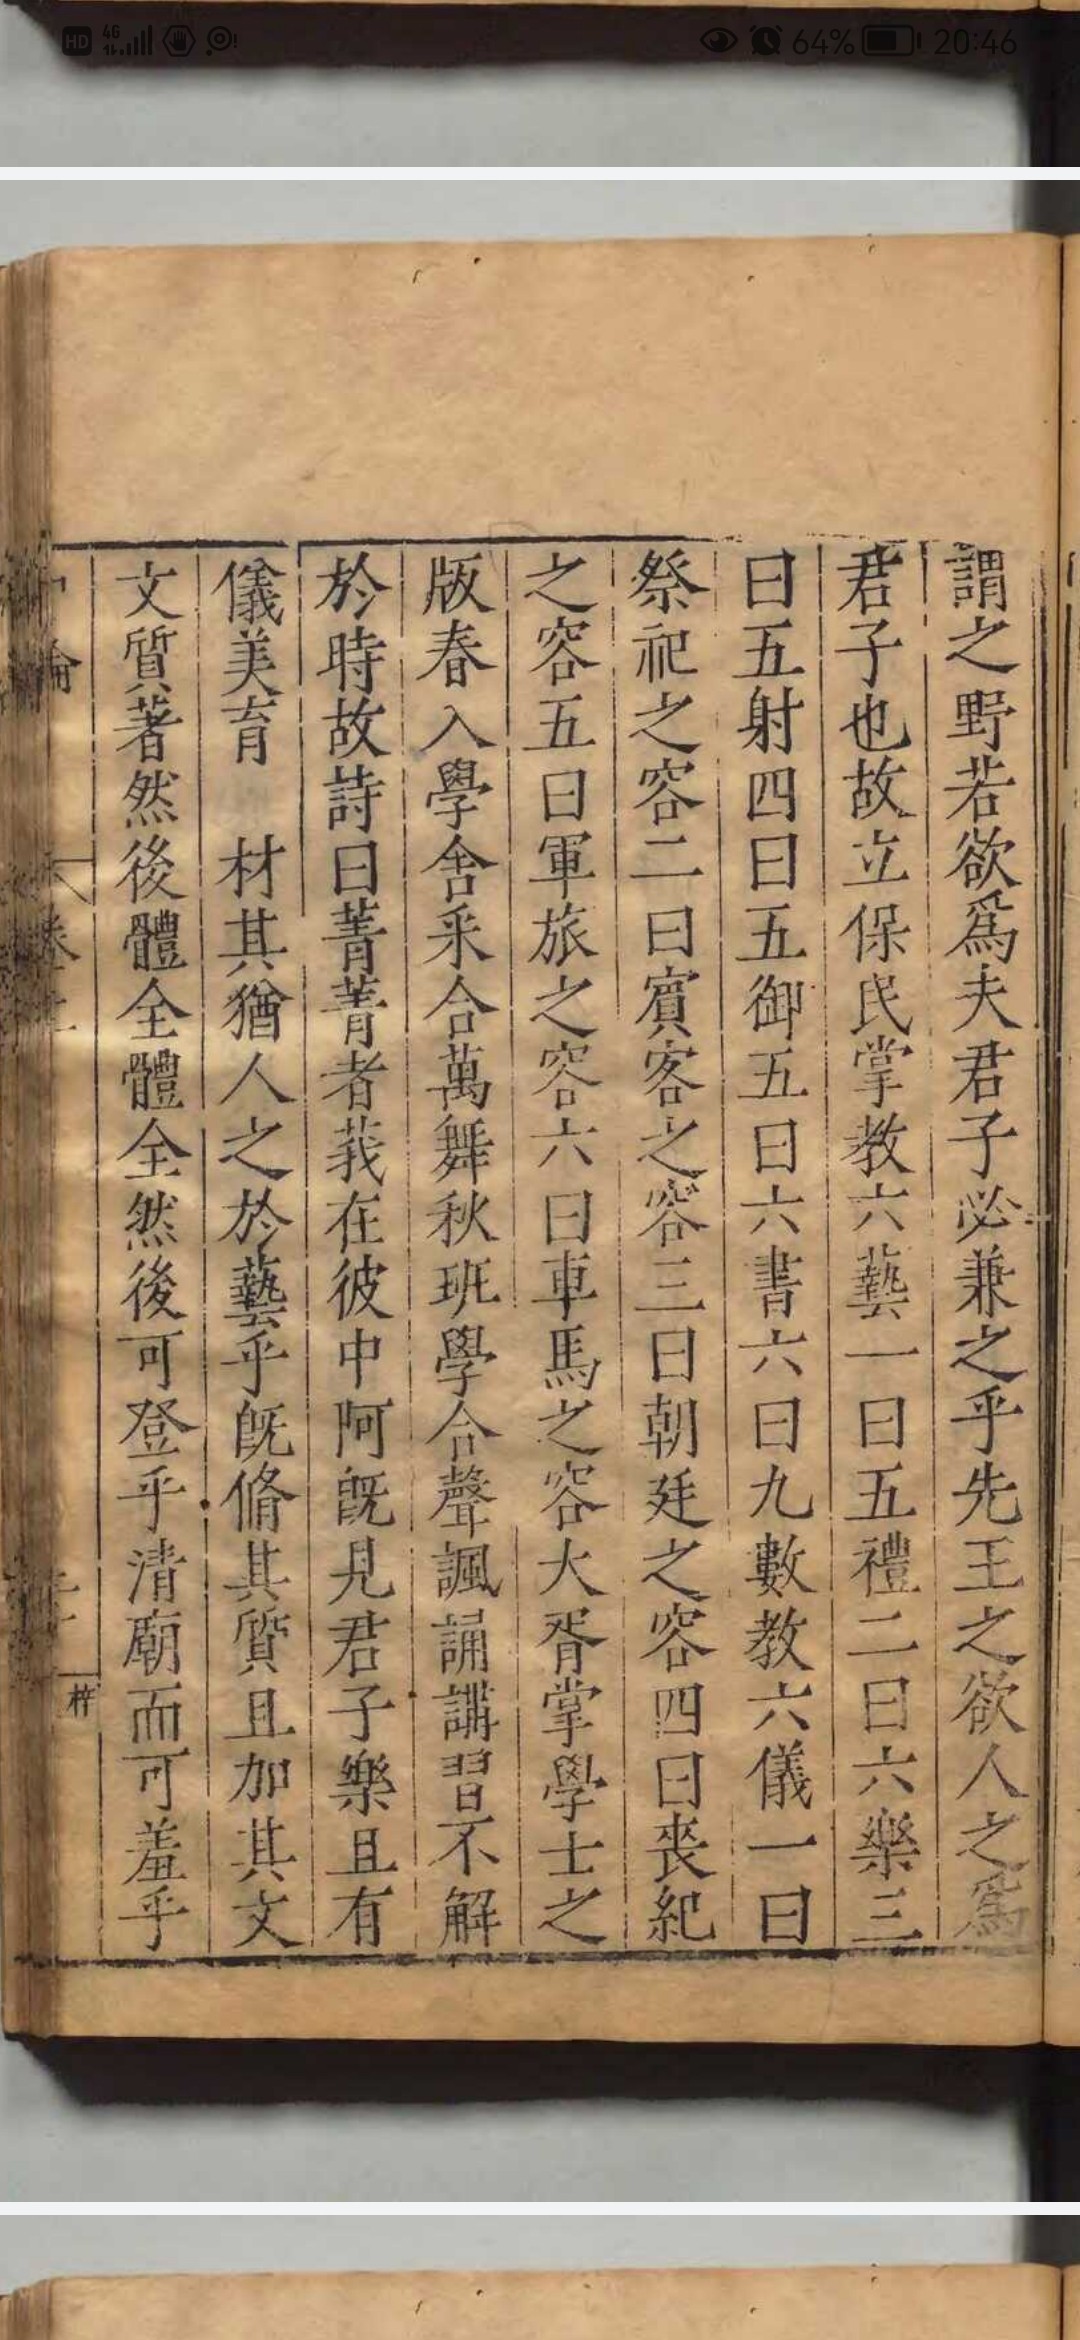 HD 4G 64% 20:46
謂之野若欲爲夫君子必兼之乎先王之欲人之爲
君子也故立保民掌教六藝一曰五禮二曰六樂三
曰五射四曰五御五曰六書六曰九數教六儀一曰
祭祀之容二曰賓客之容三曰朝廷之容四曰喪紀
之容五曰軍旅之容六曰車馬之容大胥掌學士之
版春入學舍釆合萬舞秋班學合聲諷誦講習不解
於時故詩曰菁菁者莪在彼中阿旣見君子樂且有
儀美育 材其猶人之於藝乎旣脩其質且加其文
文質著然後體全體全然後可登乎清廟而可羞乎
論
卷上
梓